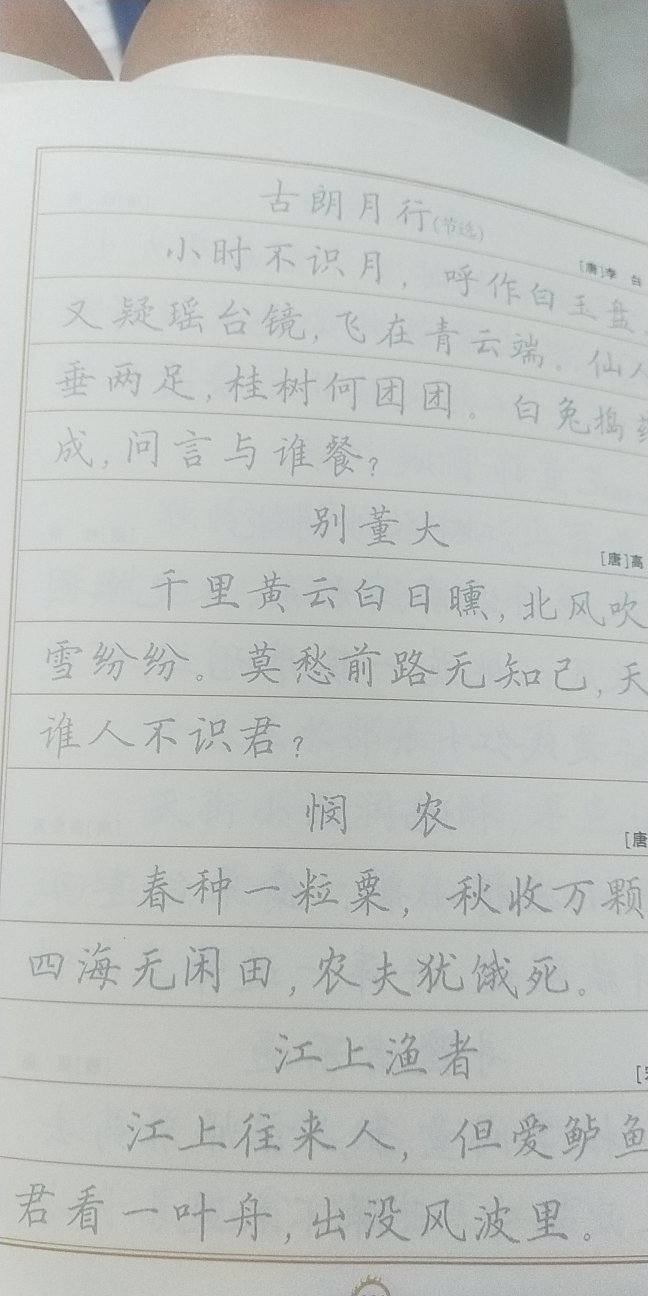 古朗月行(节选)
[唐]李白
小时不识月，呼作白玉盘。
又疑瑶台镜，飞在青云端。仙人
垂两足，桂树何团团。白兔捣药
成，问言与谁餐？
别董大
[唐]高
千里黄云白日曛，北风吹
雪纷纷。莫愁前路无知己，天
谁人不识君？
悯 农
[唐
春种一粒粟，秋收万颗
四海无闲田，农夫犹饿死。
江上渔者
[宋
江上往来人，但爱鲈鱼
君看一叶舟，出没风波里。